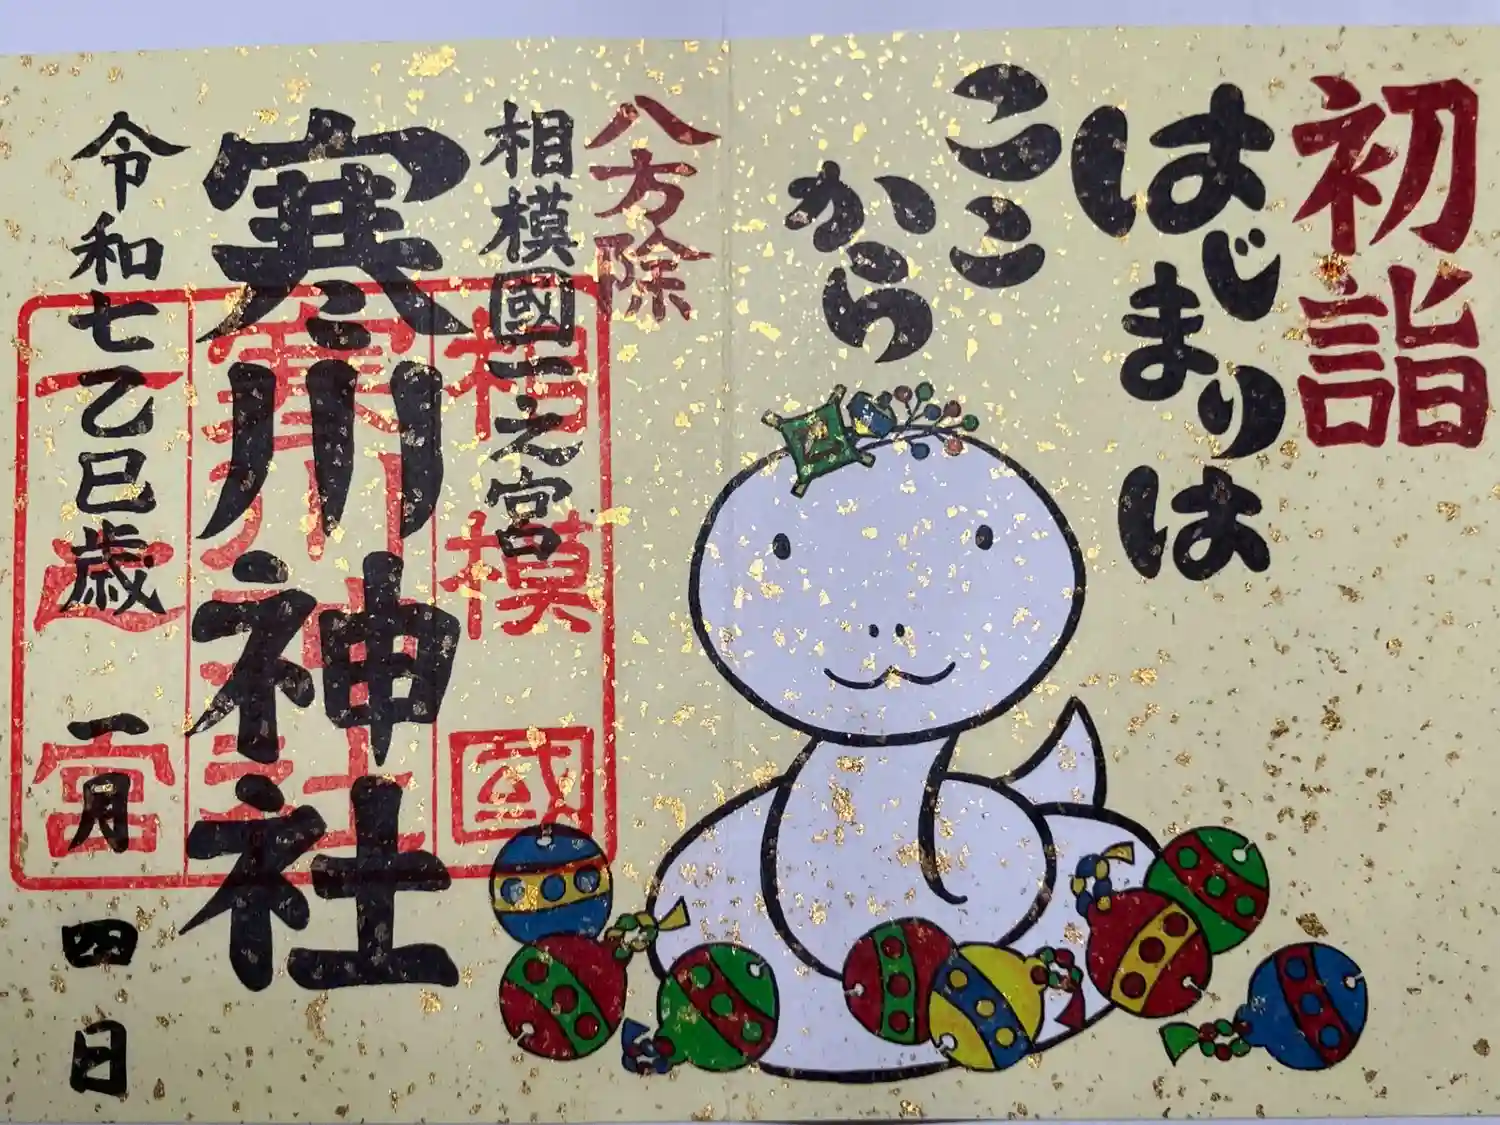 初詣
はじまりは
ここ
から
八方除
相模國一之宮
寒川神社
令和七乙巳歳 一月 四日
相模國
寒川神社
一之宮